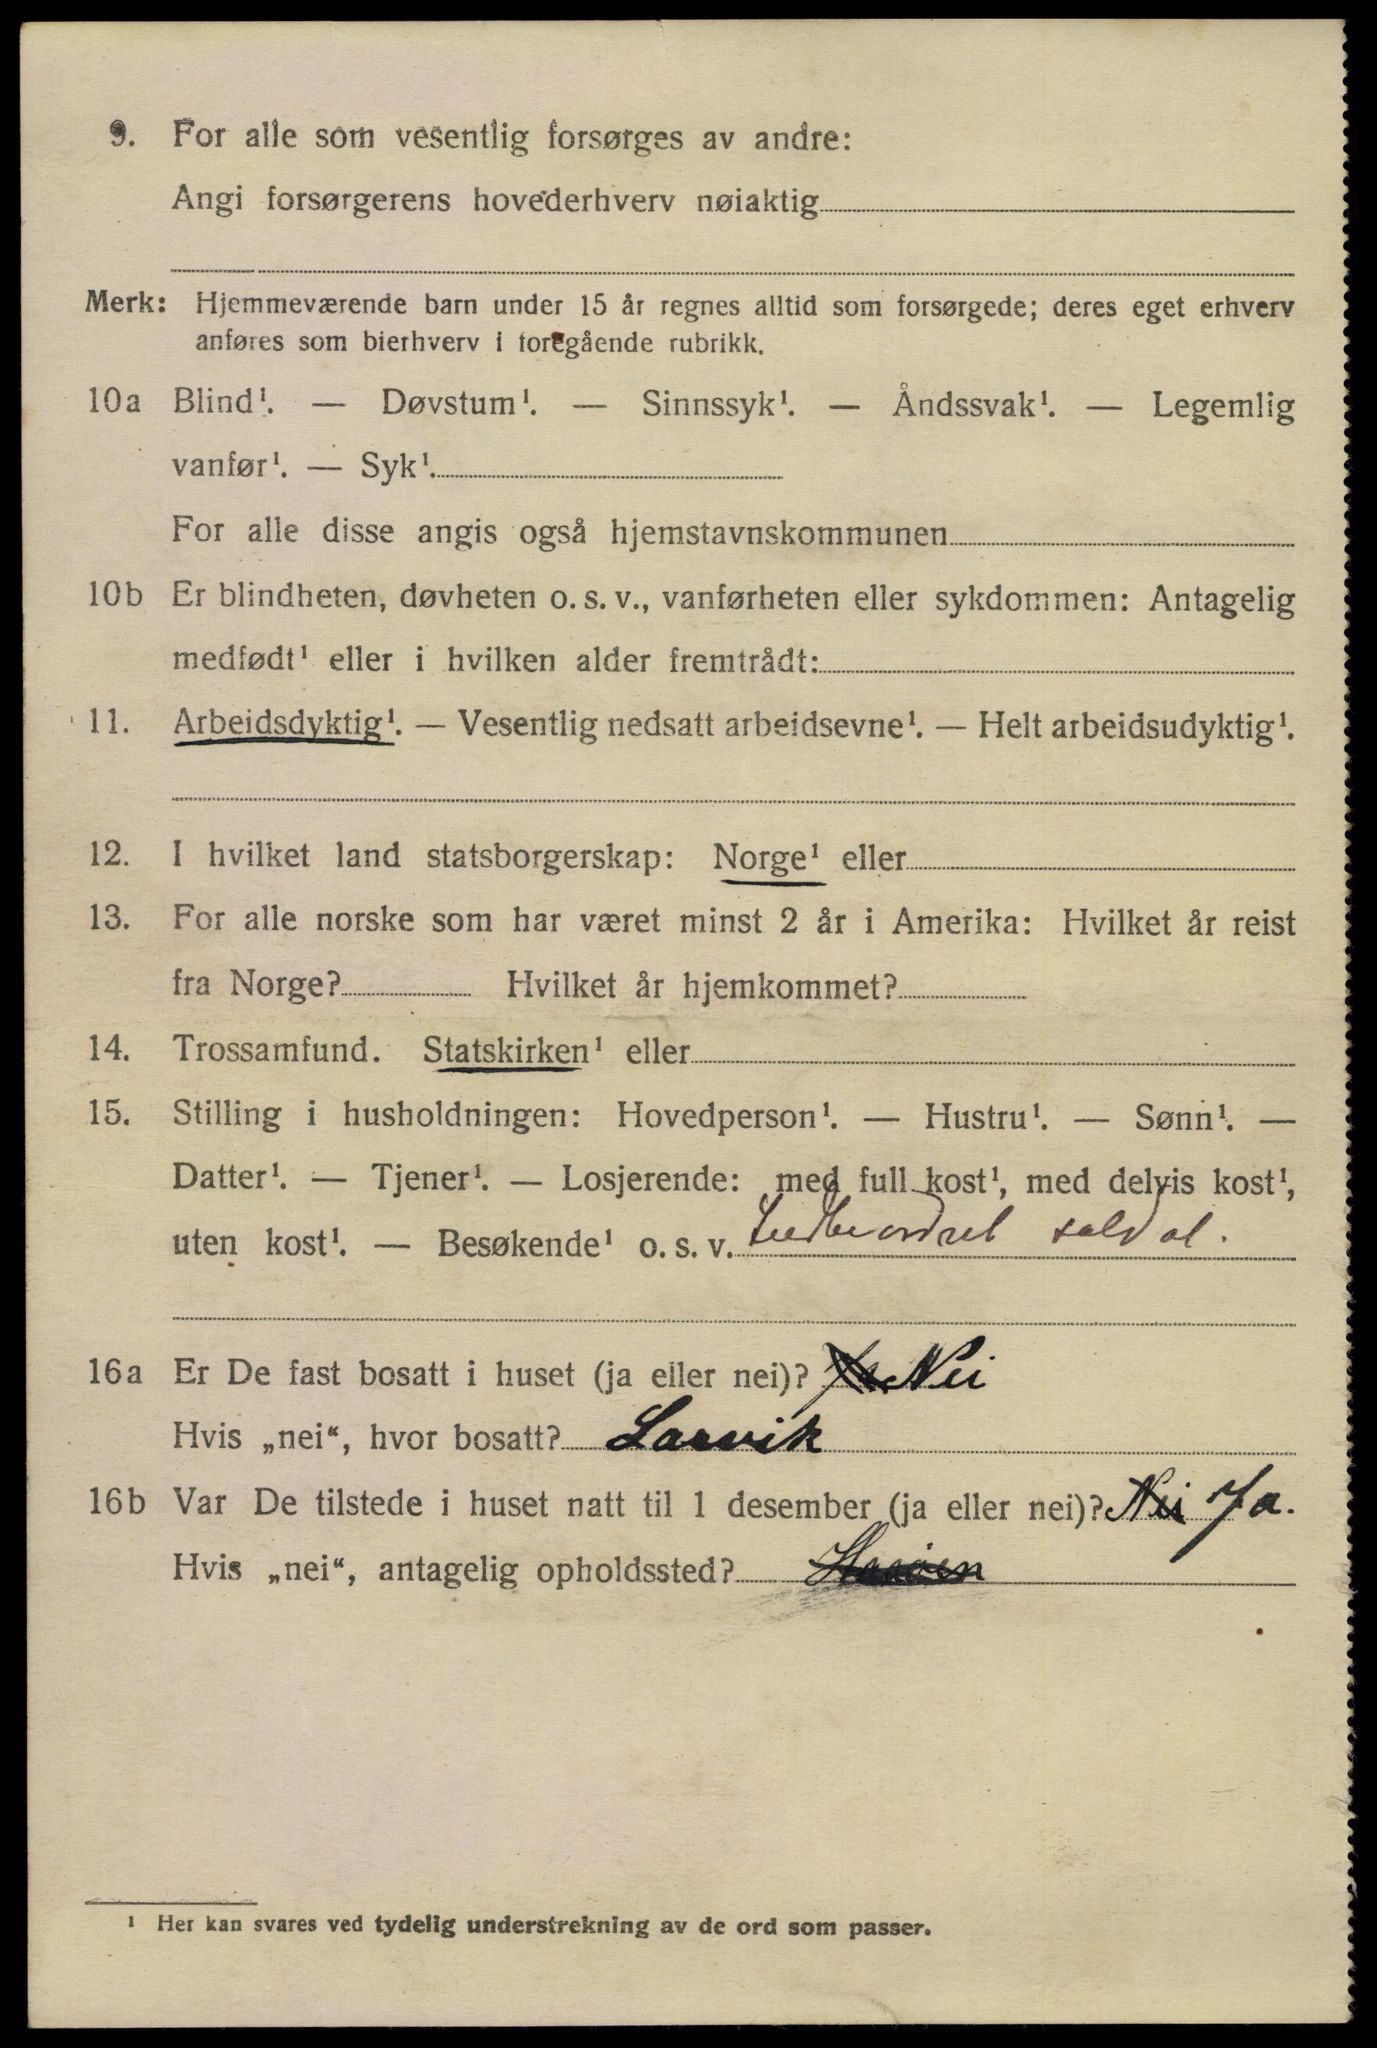 9. For alle som vesentlig forsørges av andre:
Angi forsørgerens hovederhverv nøiaktig
Merk: Hjemmeværende barn under 15 år regnes alltid som forsørgede; deres eget erhverv
anføres som bierhverv i foregående rubrikk.
10a Blind¹. — Døvstum¹. — Sinnssyk¹. — Åndssvak¹. — Legemlig
vanfør¹. — Syk¹.
For alle disse angis også hjemstavnskommunen
10b Er blindheten, døvheten o. s. v., vanførheten eller sykdommen: Antagelig
medfødt¹ eller i hvilken alder fremtrådt:
11. Arbeidsdyktig¹. — Vesentlig nedsatt arbeidsevne¹. — Helt arbeidsudyktig¹.
12. I hvilket land statsborgerskap: Norge¹ eller
13. For alle norske som har været minst 2 år i Amerika: Hvilket år reist
fra Norge? Hvilket år hjemkommet?
14. Trossamfund. Statskirken¹ eller
15. Stilling i husholdningen: Hovedperson¹. — Hustru¹. — Sønn¹. —
Datter¹. — Tjener¹. — Losjerende: med full kost¹, med delvis kost¹,
uten kost¹. — Besøkende¹ o. s. v. soldat.
16a Er De fast bosatt i huset (ja eller nei)? Ja Nei
Hvis „nei“, hvor bosatt? Larvik
16b Var De tilstede i huset natt til 1 desember (ja eller nei)? Nei Ja.
Hvis „nei“, antagelig opholdssted?
¹ Her kan svares ved tydelig understrekning av de ord som passer.